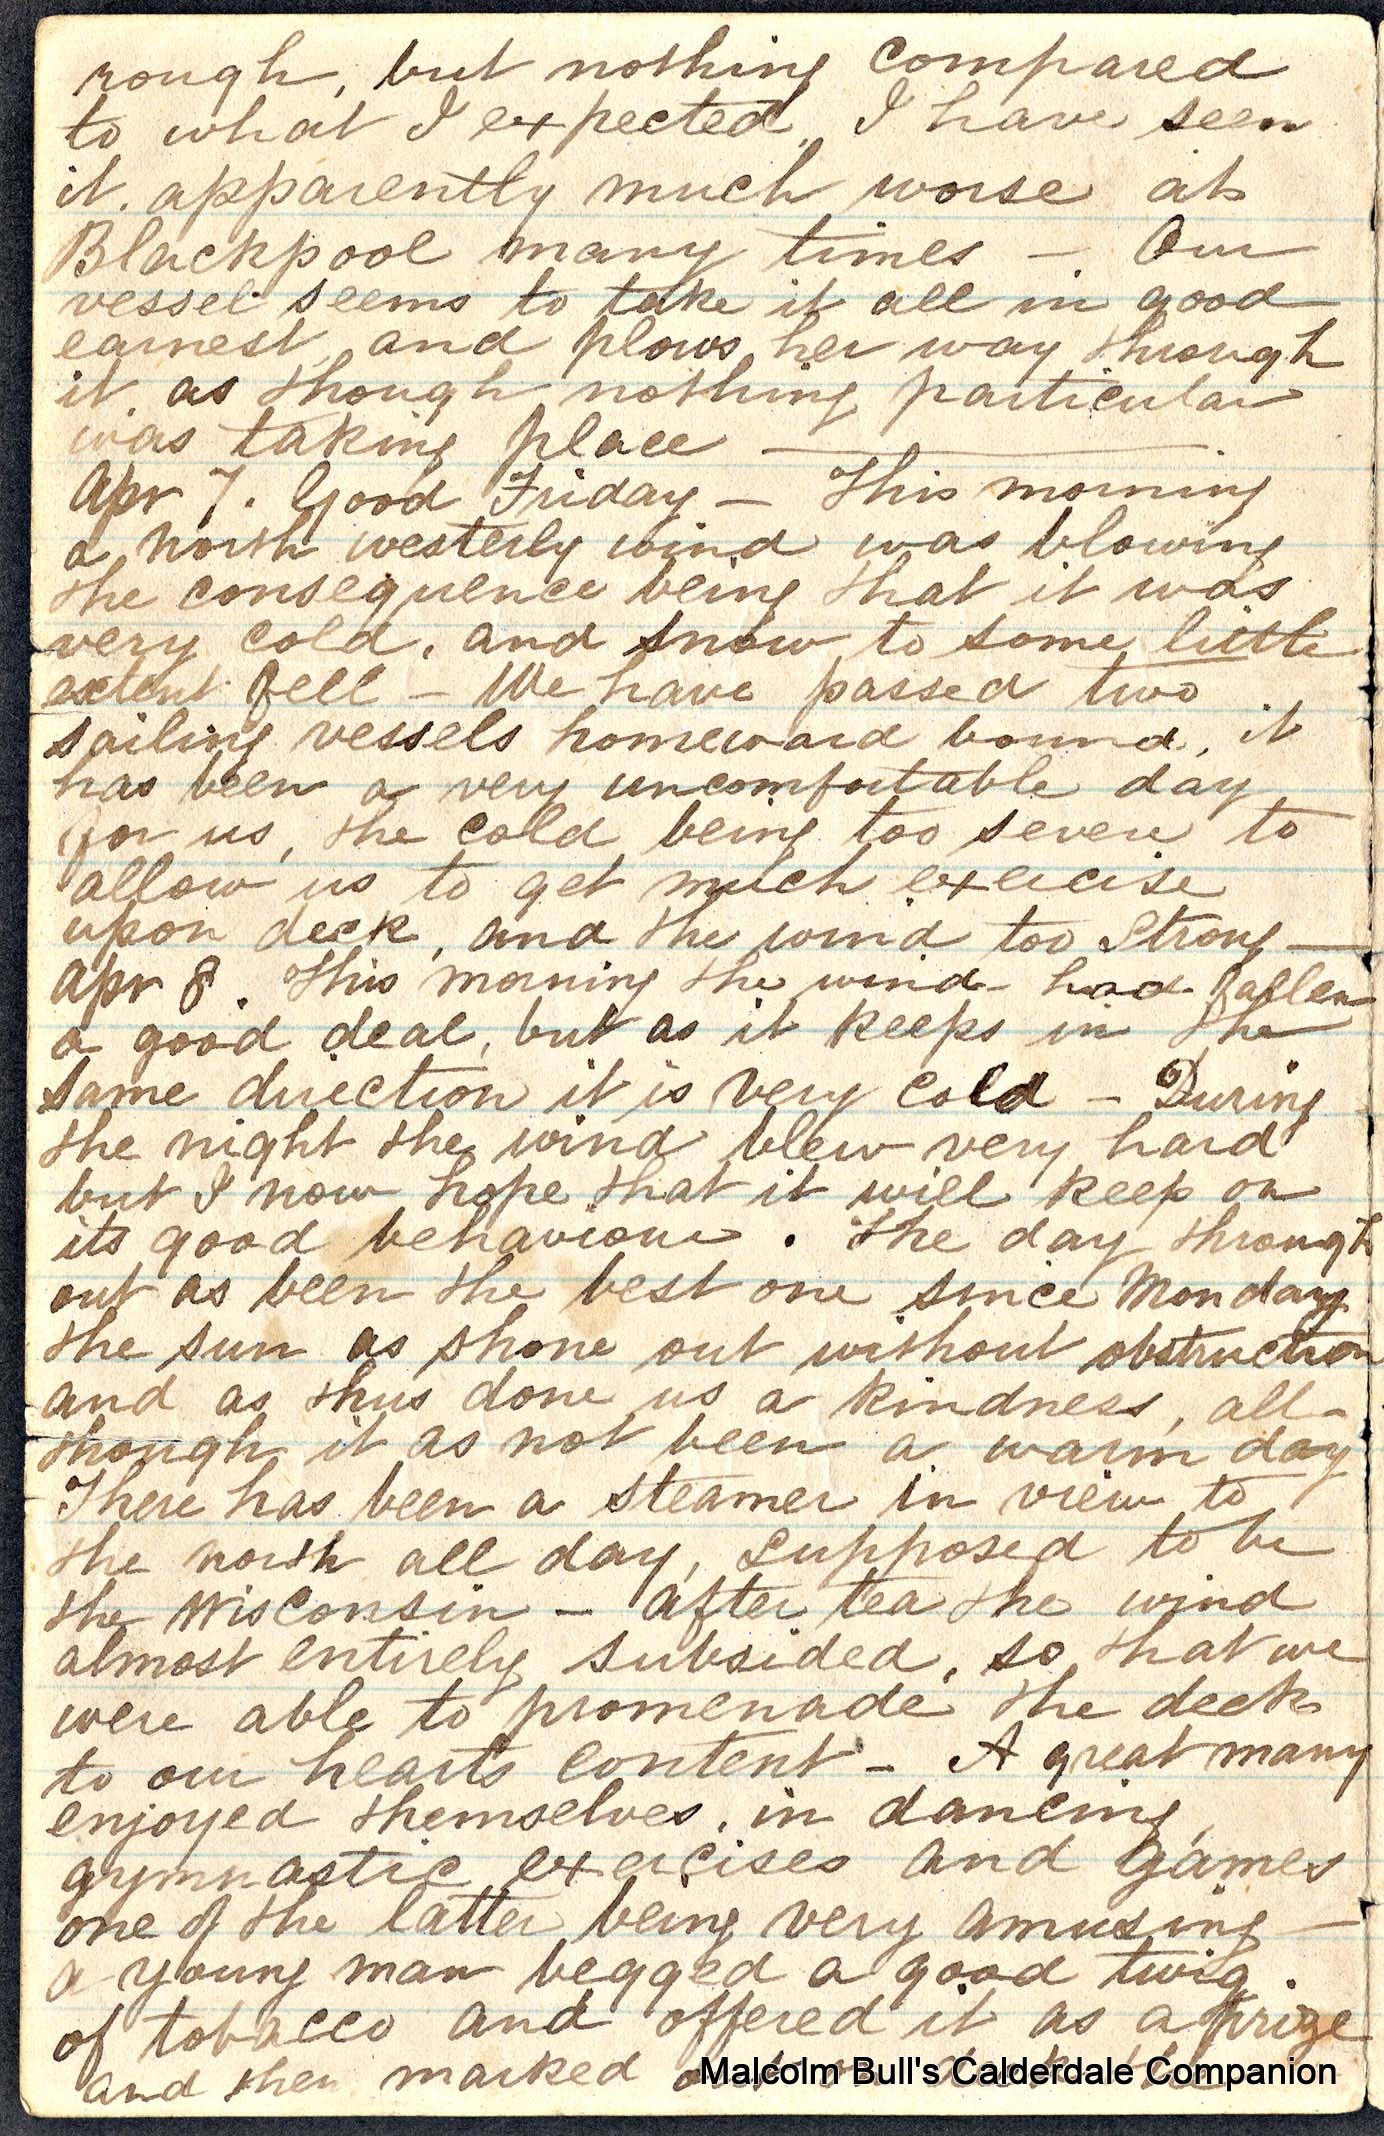 rough, but nothing compared
to what I expected, I have seen
it. apparently much worse at
Blackpool many times – Our
vessel seems to take it all in good
earnest, and plows her way through
it, as though nothing particular
was taking place —
Apr 7. Good Friday – This morning
a north westerly wind was blowing
the consequence being that it was
very cold, and snow to some little
extent fell – We have passed two
sailing vessels homeward bound, it
has been a very uncomfortable day
for us, the cold being too severe to
allow us to get much exercise
upon deck, and the wind too strong —
Apr 8. This morning the wind had fallen
a good deal, but as it keeps in the
same direction it is very cold – During
the night the wind blew very hard
but I now hope that it will keep on
its good behaviour. The day through
out as been the best one since Monday
the sun as shone out without obstruction
and as thus done us a kindness, all-
though it as not been a warm day
There has been a steamer in view to
the north all day, supposed to be
the Wisconsin – After tea the wind
almost entirely subsided, so that we
were able to promenade the deck
to our hearts content – A great many
enjoyed themselves, in dancing,
gymnastic exercises and games
one of the latter being very amusing —
a young man begged a good twig.
of tobacco and offered it as a prize
and then marked out on deck the
Malcolm Bull's Calderdale Companion